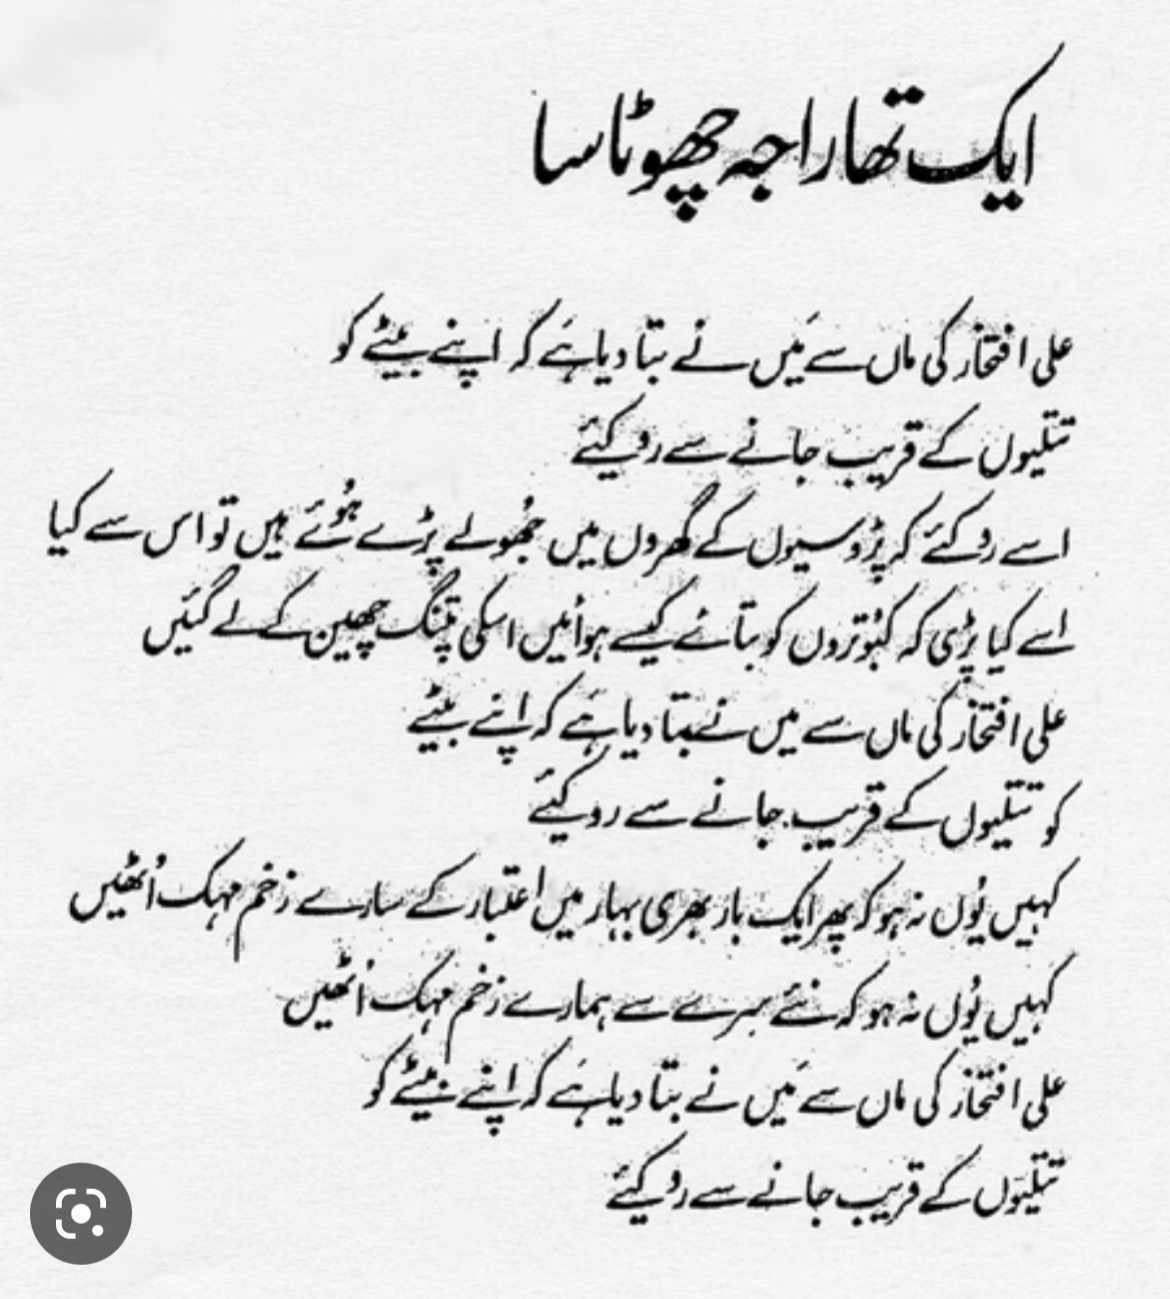 ایک تھا راجہ چھوٹا سا
علی افتخار کی ماں سے مَیں نے بتا دیا ہَے کہ اپنے بیٹے کو
تتلیوں کے قریب جانے سے روکیئے
اسے روکئے کہ پڑوسیوں کے گھروں میں جھُولے پڑے ہُوئے ہیں تو اس سے کیا
اسے کیا پڑی کہ کبُوتروں کو بتائے کیسے ہوائیں اسکی پتنگ چھین کے لے گئیں
علی افتخار کی ماں سے میں نے بتا دیا ہَے کہ اپنے بیٹے
کو تتلیوں کے قریب جانے سے روکیئے
کہیں یُوں نہ ہو کہ پھر ایک بار بھری بہار میں اعتبار کے سارے زخم مہک اُٹھیں
کہیں یُوں نہ ہو کہ نئے سرے سے ہمارے زخم مہک اُٹھیں
علی افتخار کی ماں سے مَیں نے بتا دیا ہَے کہ اپنے بیٹے کو
تتلیوں کے قریب جانے سے روکیئے